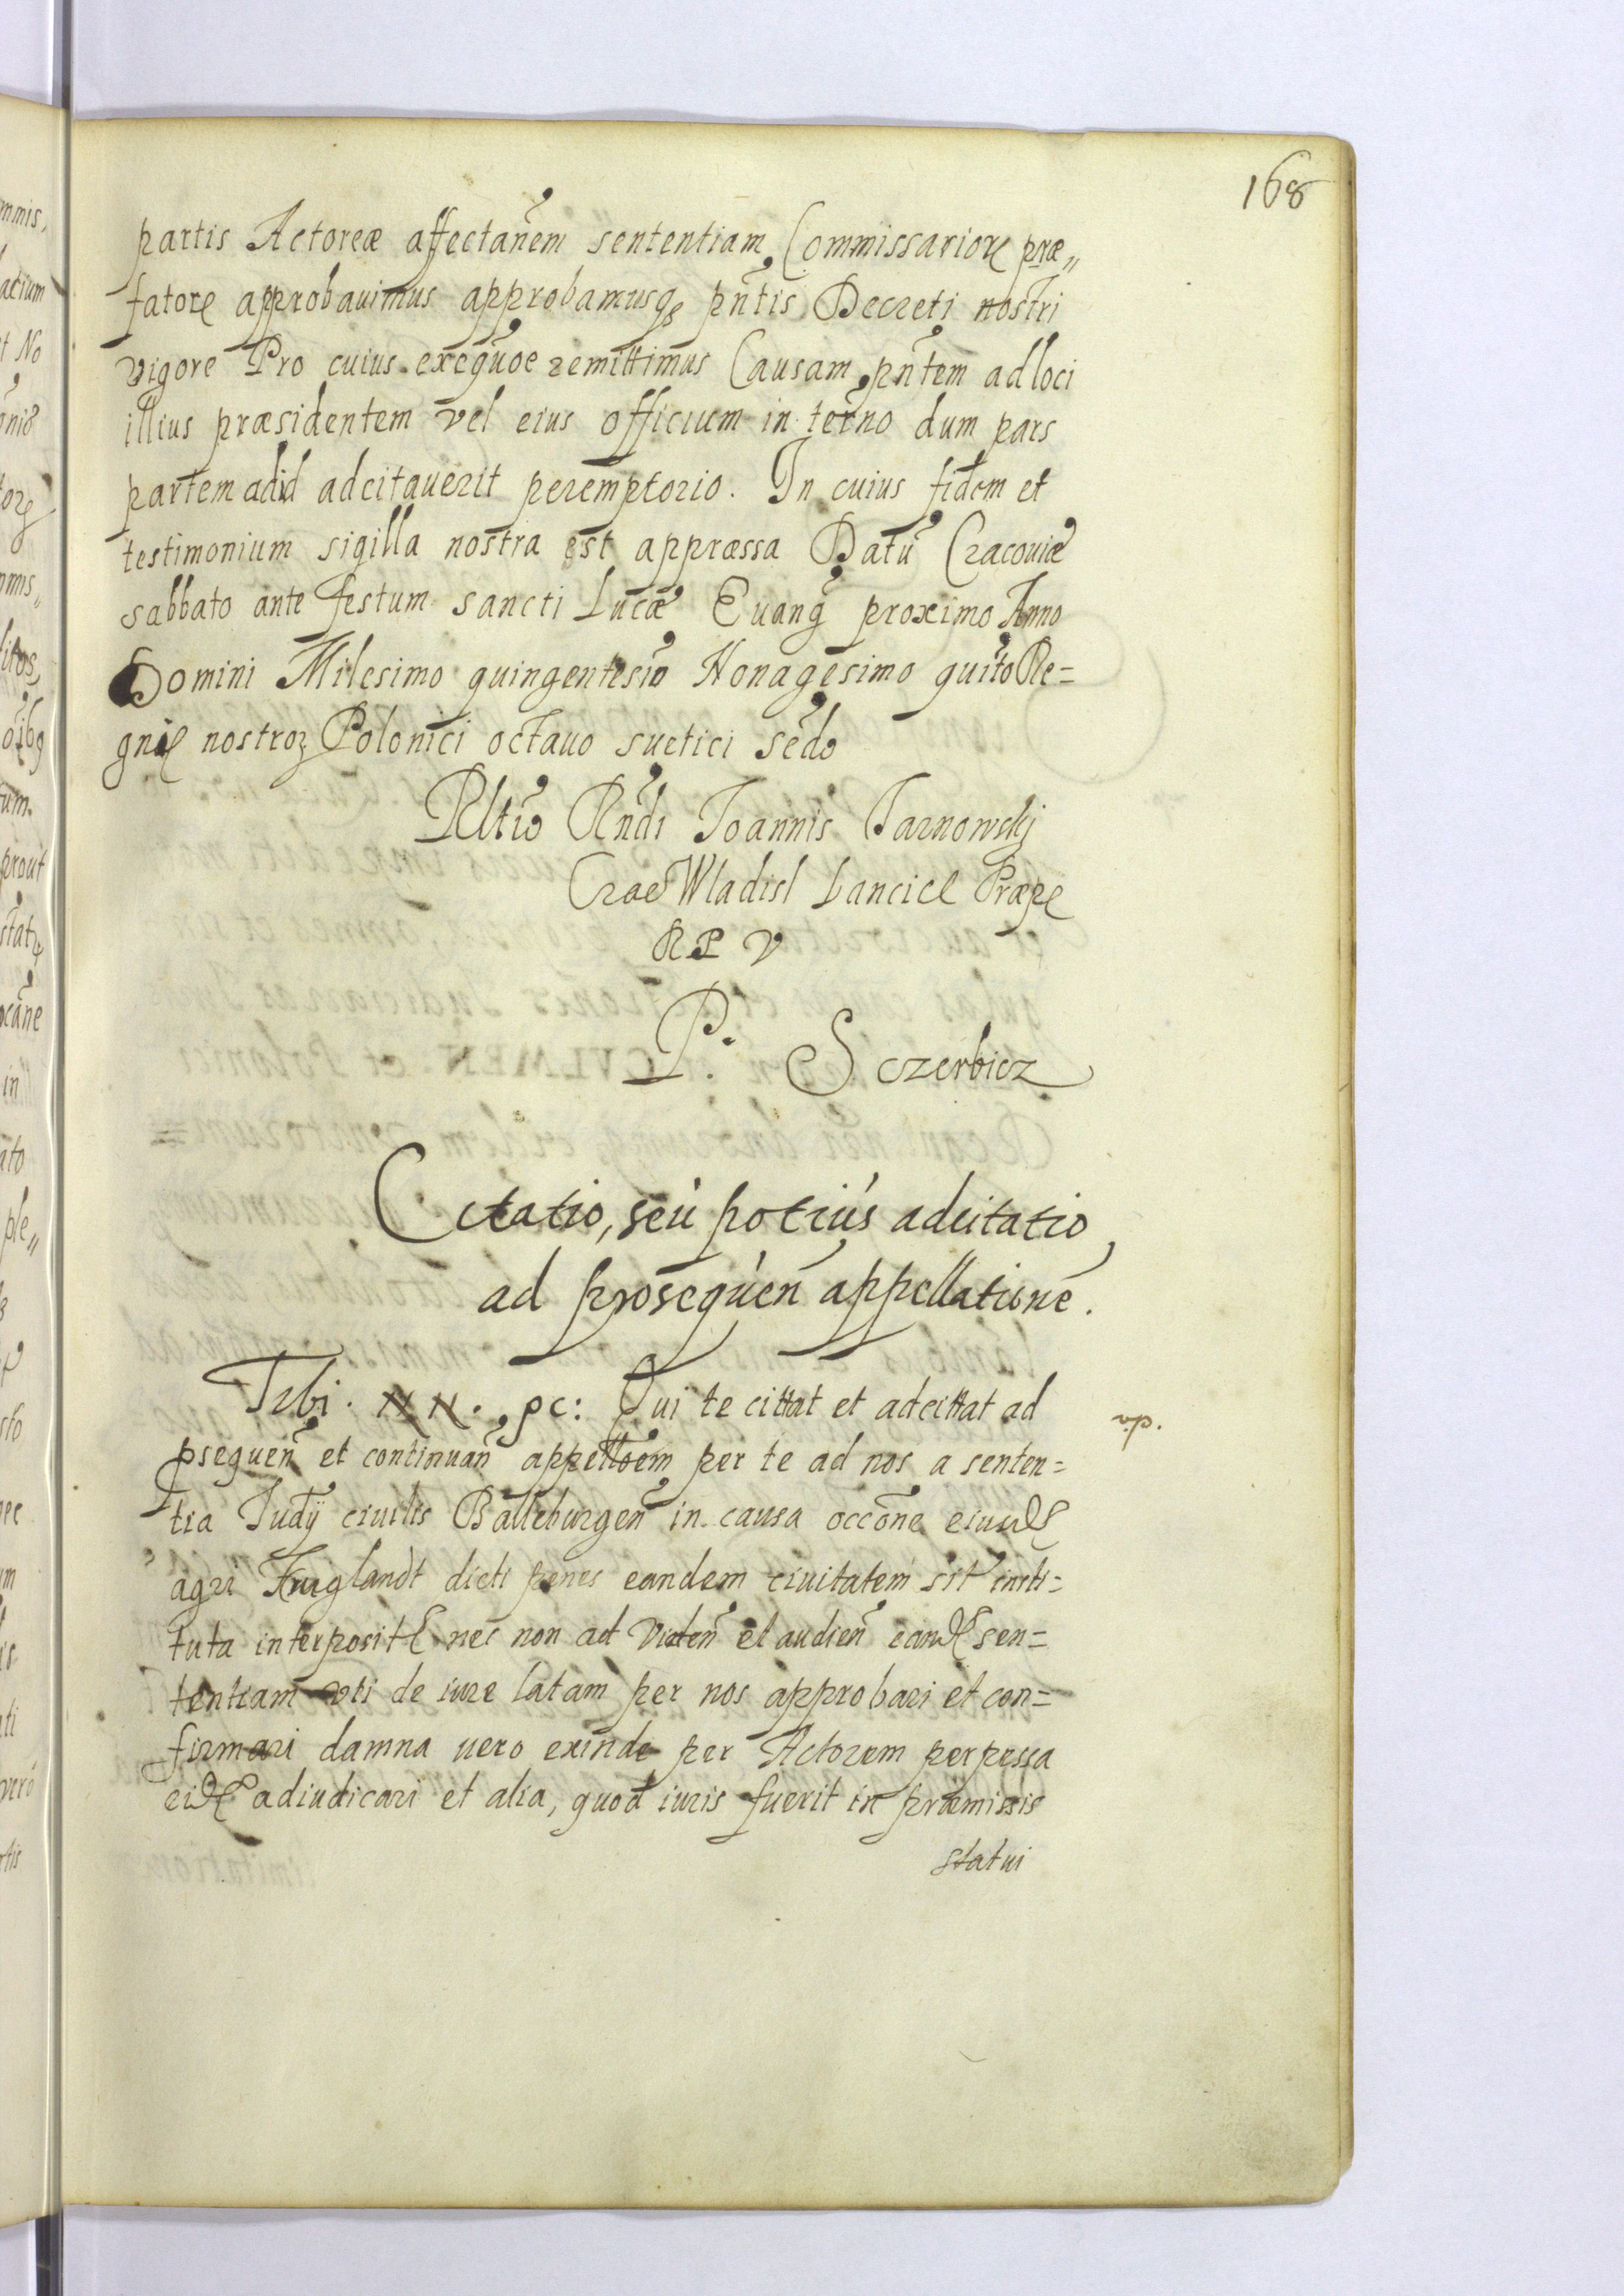 168
partis Actoreæ affectañem sententiam Commissarior præ„
fator approbauimus approbamusq pñtis Decreti nostri
vigore Pro cuius exeqũoe remittimus Causam pñtem ad loci
illius præsidentem vel eius officium in terño dum pars
partem adid adcitauerit peremptorio. In cuius fidem et
testimonium sigilla nostra est appræssa Datũ Cracouiæ
sabbato ante festum sancti Lucæ Euang̃ proximo Anno
Domini Milesimo quingentesĩo Nonagesimo quĩto Re=
gni nostror Polonici octauo suetici secdo
Rltĩo Rñdi Joannis Tarnowskj
Crac Wladisl Lancicē Præp
R P V
P. Sczerbicz
Citatio, seù potiùs adcitatio
ad prosequeñ appellationē.
Tibi. NN. pc: Qui te cittat et adcittat ad
pseqũeñ et continuañ appelloẽm per te ad nos a senten=
tia Judỹ ciuilis Balleburgeñ in causa occõne
agri dicti penes eandem ciuitatem sit insti=
tuta interposit nec non ad Videñ et audieñ eand sen=
tentiam vti de iure latam per nos approbari et con=
firmari damna uero exinde per Actorem perpessa
eid adiudicari et alia, quod iuris fuerit in præmissis
statui